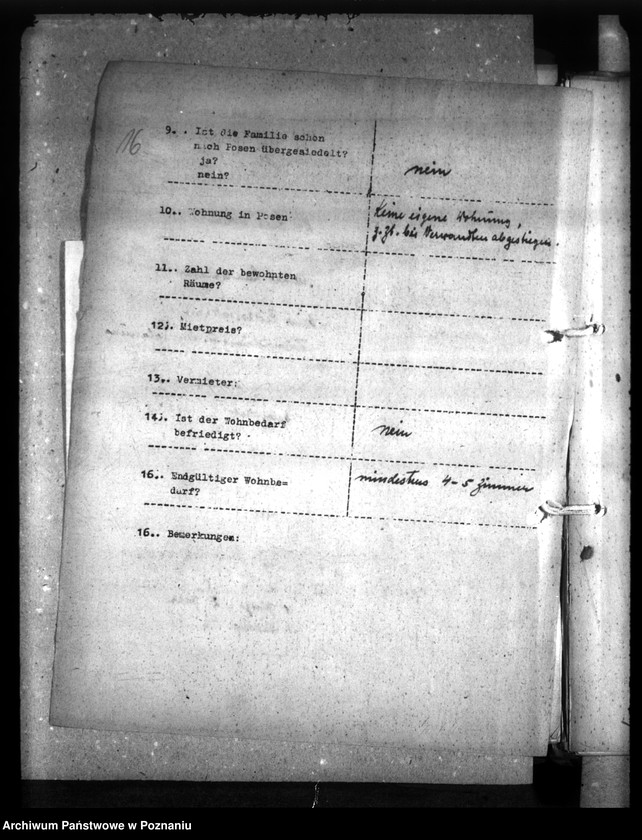 16
9.. Ist die Familie schon
nach Posen übergesiedelt?
ja?
nein?
nein
10.. Wohnung in Posen:
Keine eigene Wohnung,
z.Zt. bei Verwandten abgestiegen.
11.. Zahl der bewohnten
Räume?
12.. Mietpreis?
13.. Vermieter:
14.. Ist der Wohnbedarf
befriedigt?
nein
16.. Endgültiger Wohnbe=
darf?
mindestens 4-5 Zimmer
16.. Bemerkungen:
Archiwum Państwowe w Poznaniu